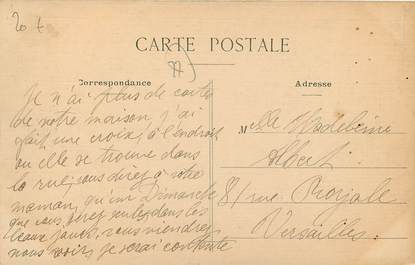 20 t
CARTE POSTALE
Correspondance
Adresse
Je n'ai plus de cartes
de notre maison, j'ai
fait une croix à l'endroit
ou elle se trouve dans
la rue, vous direz à votre
maman, qu'un Dimanche
que vous serez seules dans les
beaux jours, vous viendrez
nous voir, je serai contente
Melle Madeleine
Albert
8 rue Royale
Versailles